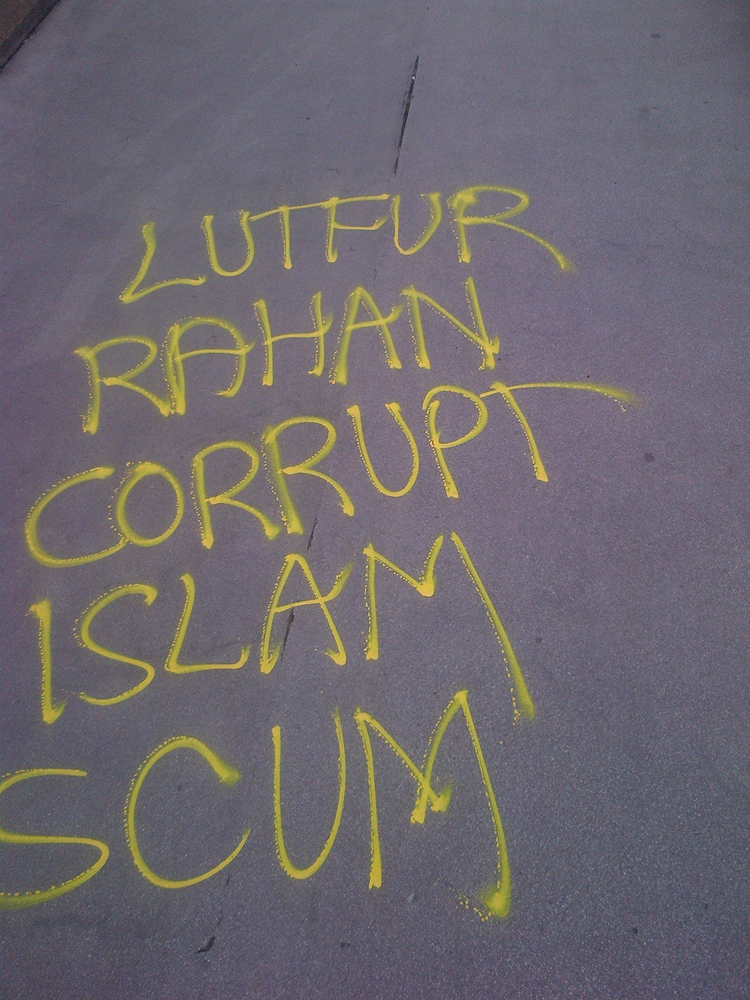 LUTFUR
RAHAN
CORRUPT
ISLAM
SCUM